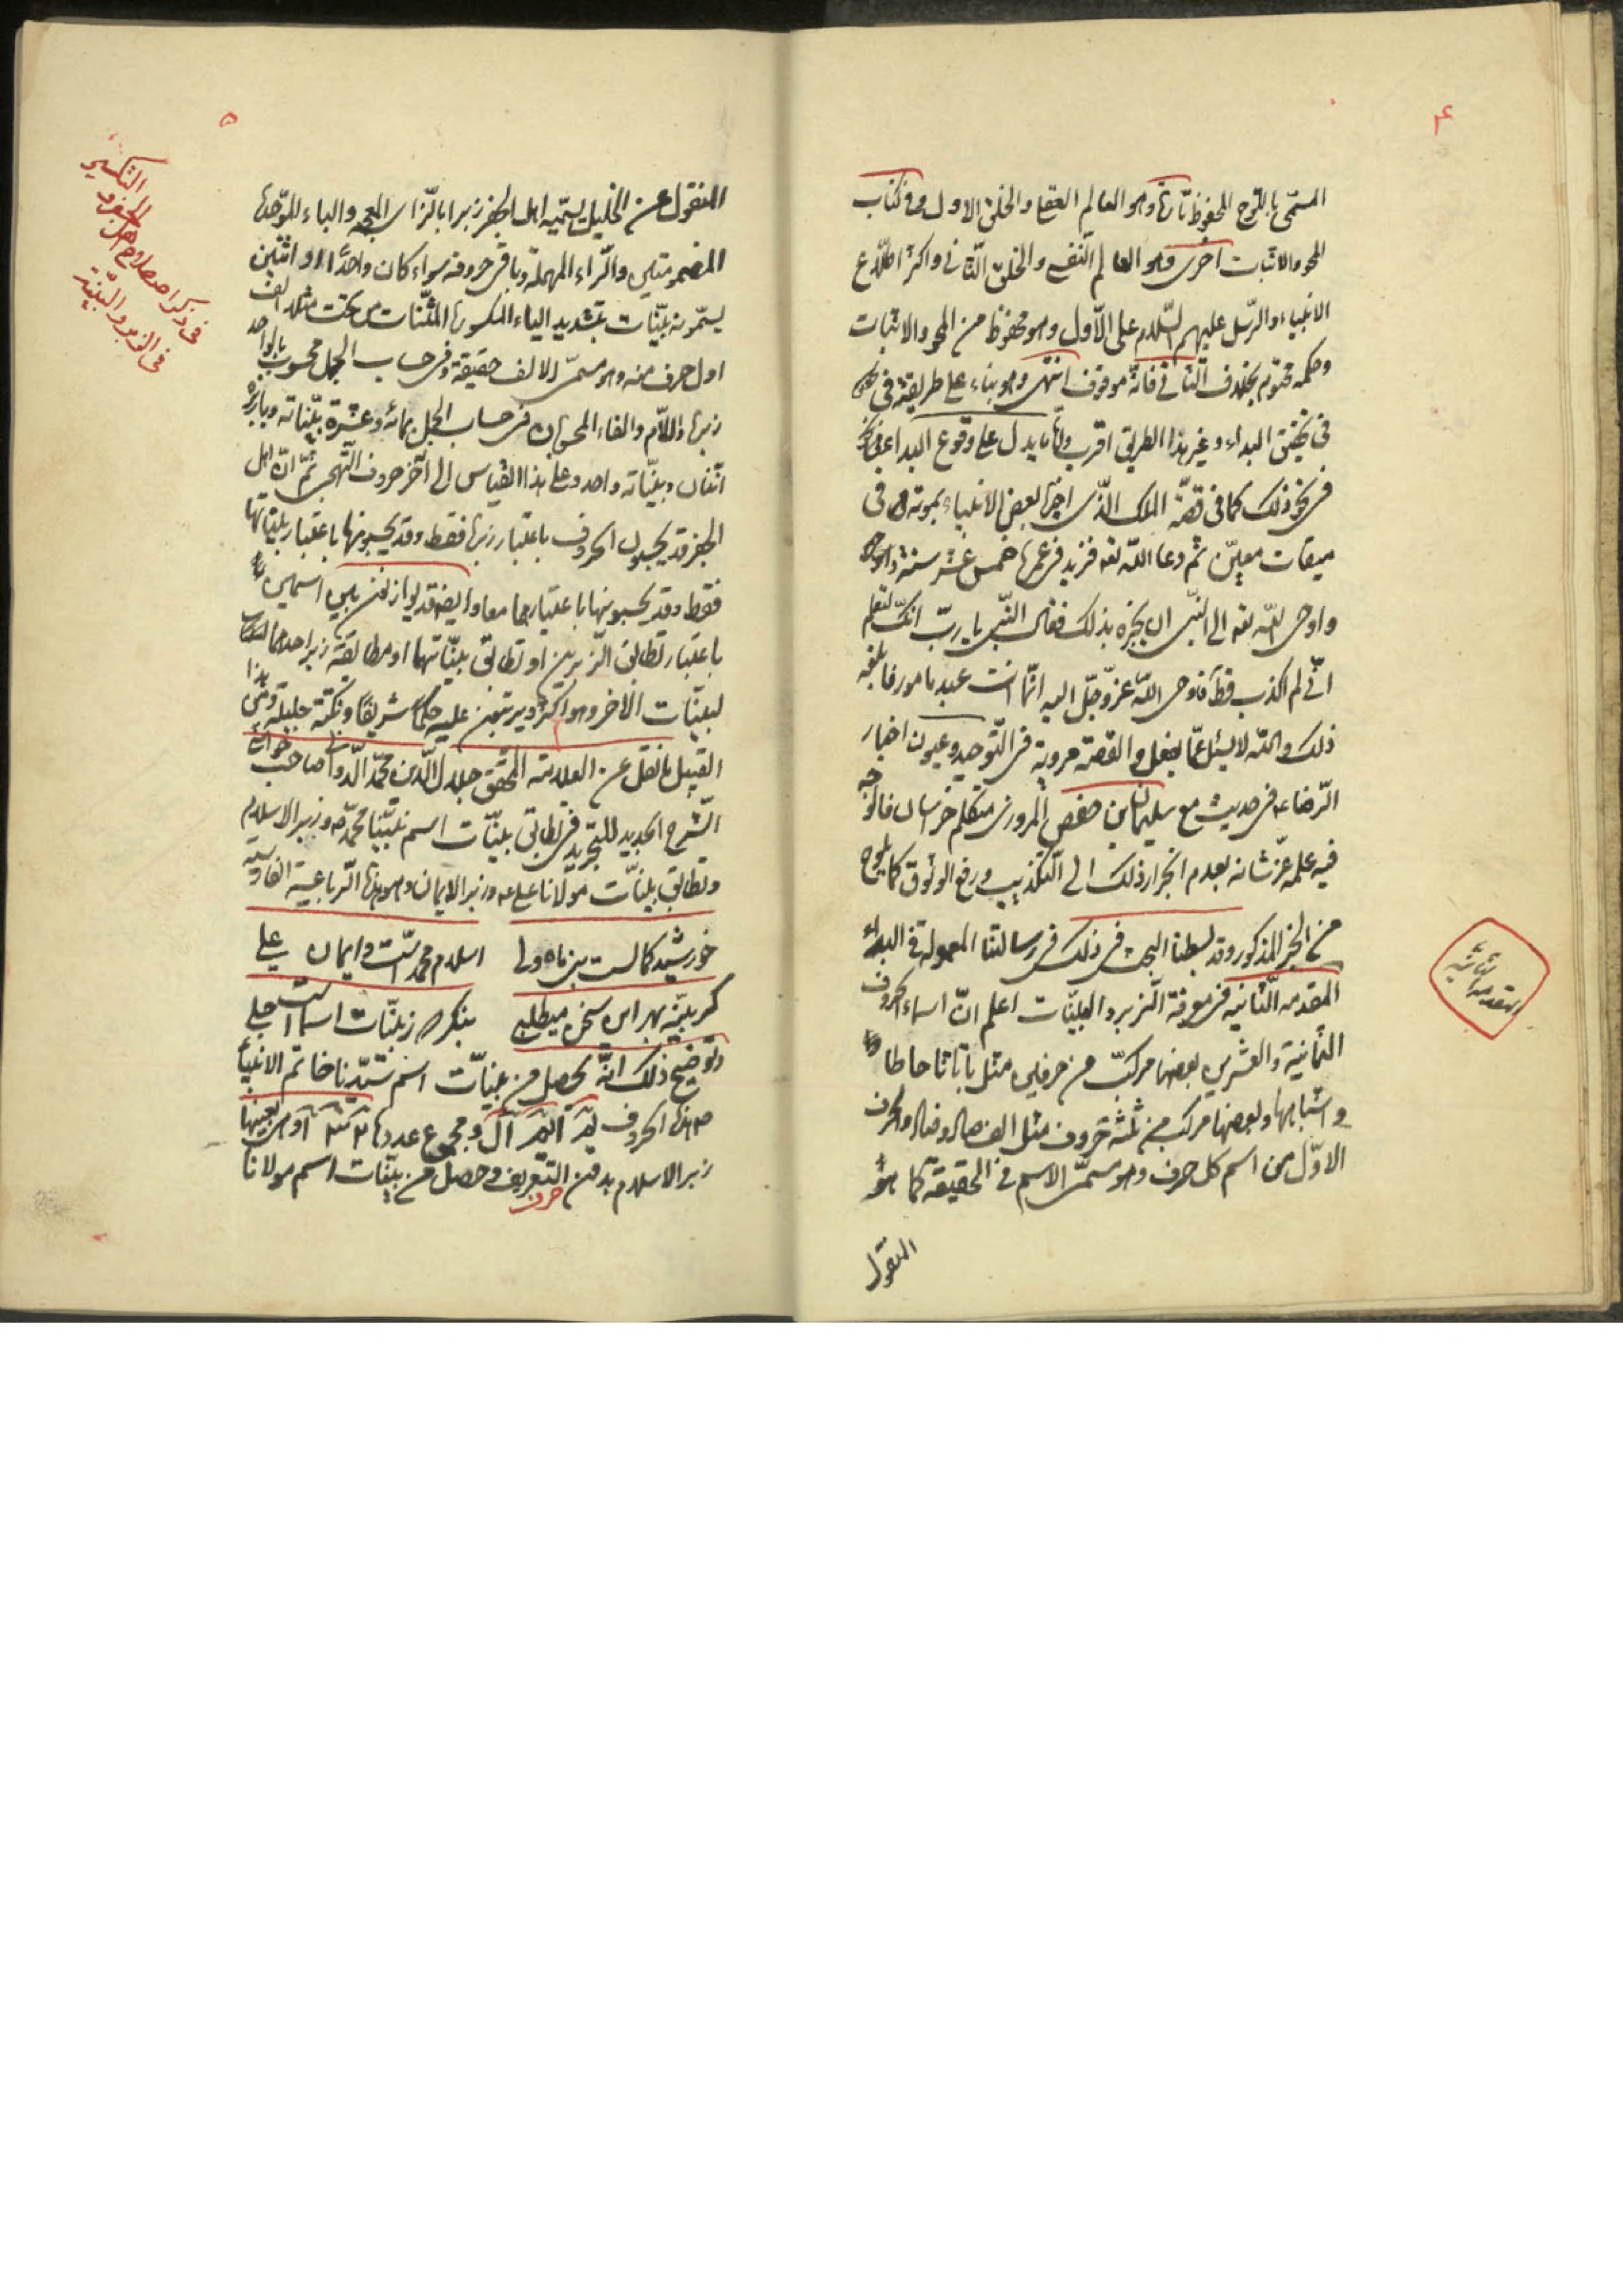 ۴
المسمّى باللوح المحفوظ تارة وهو العالم العقلي والخلق الاول وفي كتاب
المحو والاثبات اخرى وهو العالم النفسي والخلق الثاني واكثر اطلاع
الانبياء والرّسل عليهم السّلام على الاّول وهو محفوظ من المحو والاثبات
وحكمه محتوم بخلاف الثاني فانّه موقوف انتهى وهو بناء على طريقته في
في تحقيق البداء وغير هذا الطريق اقرب وانّما يدل على وقوع البداء
في نحو ذلك كما في قصّة الملك الّذي اخبر بعض الانبياء بموته في
ميقات معيّن ثم دعا اللّه تعه فزيد في عمره خمس عشر سنة
واوحى اللّه تعه الى النّبي ان يخبره بذلك فقال النّبي يا ربّ انّك لتعلم
انّي لم اكذب قطّ فاوحى اللّه عزّ وجلّ اليه انّما انت عبد مامور فابلغه
ذلك واللّه لا يسئل عمّا يفعل والقصّة مروية في التّوحيد وعيون اخبار
الرّضا عه في حديث مع سليمان بن حفص المروزي متكلم خراسان
فيه علمه عزّ شانه بعدم انجرار ذلك الى التكذيب ورفع الوثوق كما يلوح
من الخبر المذكور وقد بسطنا البحث في ذلك في رسالتنا المعمولة في البداء
المقدمه الثّانيه في معرفة الزبر والبيّنات اعلم انّ اسماء الحروف
الثمانية والعشرين بعضها مركبّ من حرفين مثل با تا ثا حا طا
واشباهها وبعضها مركب من ثلثة حروف مثل الف صاد وضاد والحرف
الاوّل من اسم كل حرف وهو مسمّى الاسم في الحقيقة كما هو
المنقول
المقدمة الثانية
۵
المنقول عن الخليل يسمّيه اهل الجفر زبرا بالزّاى المعجمه والباء الموّحدة
المضمومتين والرّاء المهملة وباقى حروفه سواء كان واحدًا او اثنين
يسمّونه بيّنات بتشديد الياء المكسورة المثنّات من تحت مثلا الف
اول حرف منه وهو مسمّى الالف حقيقة وفي حساب الجمل محسوب بالواحد
زبرة واللّام والفاء المحسوبان في حساب الجمل بمائة وعشرة بيّناته وبا زبره
اثنان وبيّناته واحد وعلى هذا القياس الى آخر حروف التهجي ثمّ انّ اهل
الجفر قد يحسبون الحروف باعتبار زبرها فقط وقد يحسبونها باعتبار بيّناتها
فقط وقد يحسبونها باعتبارهما معا وايضا قد يوازنون بين اسمين
باعتبار تطابق الزّبرين او تطابق بيّناتهما او مطابقة زبر احدهما
لبيّنات الآخر وهو اكثر ويرتبون عليه حكمًا شريفًا ونكتة جليلة ومن هذا
القبيل ما نقل عن العلامة المحقق جلال الدّين محمّد الدّواني صاحب حواشي
الشّرح الجديد للتّجريد في تطابق بيّنات اسم نبيّنا محمّد صه وزبر الاسلام
وتطابق بيّنات مولانا علي عه وزبر الايمان وهو هذه الرّباعية الفارسية
خورشيد كمالست نبى ماه ولى اسلام محمد است وايمان على
كر بيّنه بهر اين سخن ميطلبى بنكر كه ز بيّنات اسما است جلى
وتوضيح ذلك انّه يحصل من بيّنات اسم سيّدنا خاتم الانبياء
صه هذه الحروف يم ا يم ال ومجموع عددها ۱۳۲ وهى بعينها
زبر الاسلام بدون حرف التعريف وحصل من بيّنات اسم مولانا
في ذكر اصطلاح اهل الجفر و التكسير
في الزبر والبيّنة